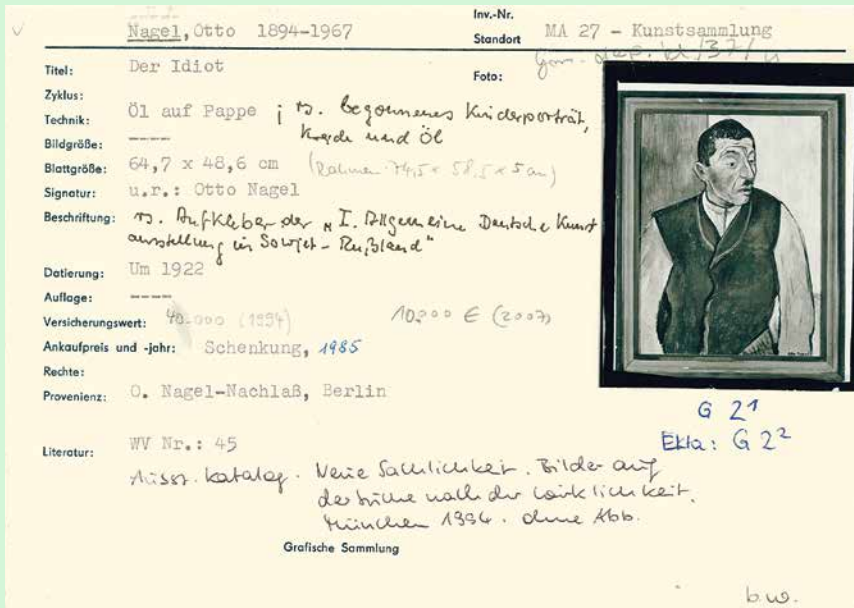 Nagel, Otto 1894-1967
Inv.-Nr.
Standort MA 27 - Kunstsammlung
Titel: Der Idiot
Foto:
Zyklus:
Technik: Öl auf Pappe ; rs. begonnenes Kinderporträt,
Kreide und Öl
Bildgröße: ----
Blattgröße: 64,7 x 48,6 cm (Rahmen 74,5 x 58,5 x 5 cm)
Signatur: u.r.: Otto Nagel
Beschriftung: rs. Aufkleber der "I. Allgemeine Deutsche Kunst
ausstellung in Sowjet-Rußland"
Datierung: Um 1922
Auflage: ----
Versicherungswert: 40.000 (1994) 10.000 € (2007)
Ankaufpreis und -jahr: Schenkung, 1985
Rechte:
Provenienz: O. Nagel-Nachlaß, Berlin
G 21
Ekta: G 22
Literatur: WV Nr.: 45
Ausst. katalog. Neue Sachlichkeit. Bilder auf
der Suche nach der Wirklichkeit.
München 1994. ohne Abb.
Grafische Sammlung
b.w.